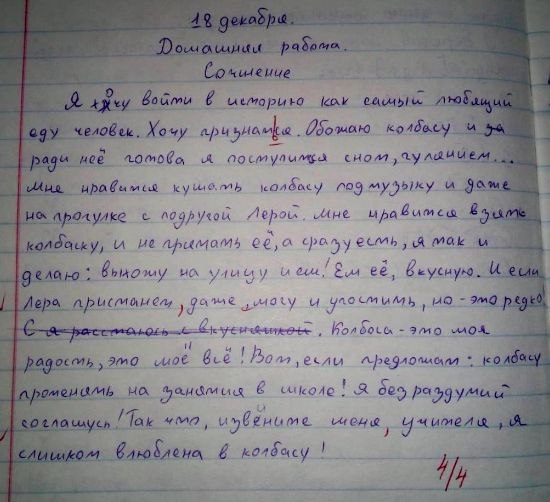 18 декабря.
Домашняя работа.
Сочинение
Я хочу войти в историю как самый любящий
еду человек. Хочу признаться. Обожаю колбасу и за
ради неё готова я поступится сном, гулянием...
Мне нравится кушать колбасу под музыку и даже
на прогулке с подругой Лерой. Мне нравится взять
колбаску, и не прятать её, а сразу есть, я так и
делаю: выхожу на улицу и ем! Ем её, вкусную. И если
Лера пристанет, даже, могу и угостить, но - это редко.
С я расстаюсь с вкусняшкой. Колбоса - это моя
радость, это моё всё! Вот, если предложат: колбасу
променять на занятия в школе! Я без раздумий
соглашусь! Так что, извените меня, учителя, я
слишком влюблена в колбасу!
4/4